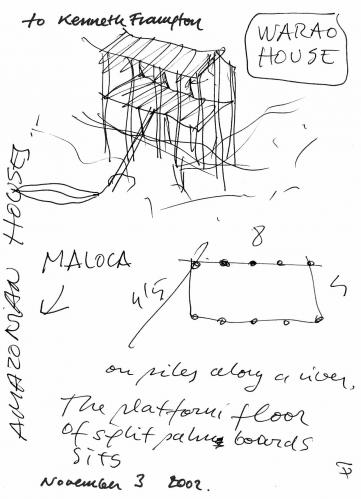 to Kenneth Frampton
WARAO
HOUSE
AMAZONIAN HOUSES
MALOCA
8
5
on piles along a river,
The platform floor
of split palm boards
sits
November 3 2002.